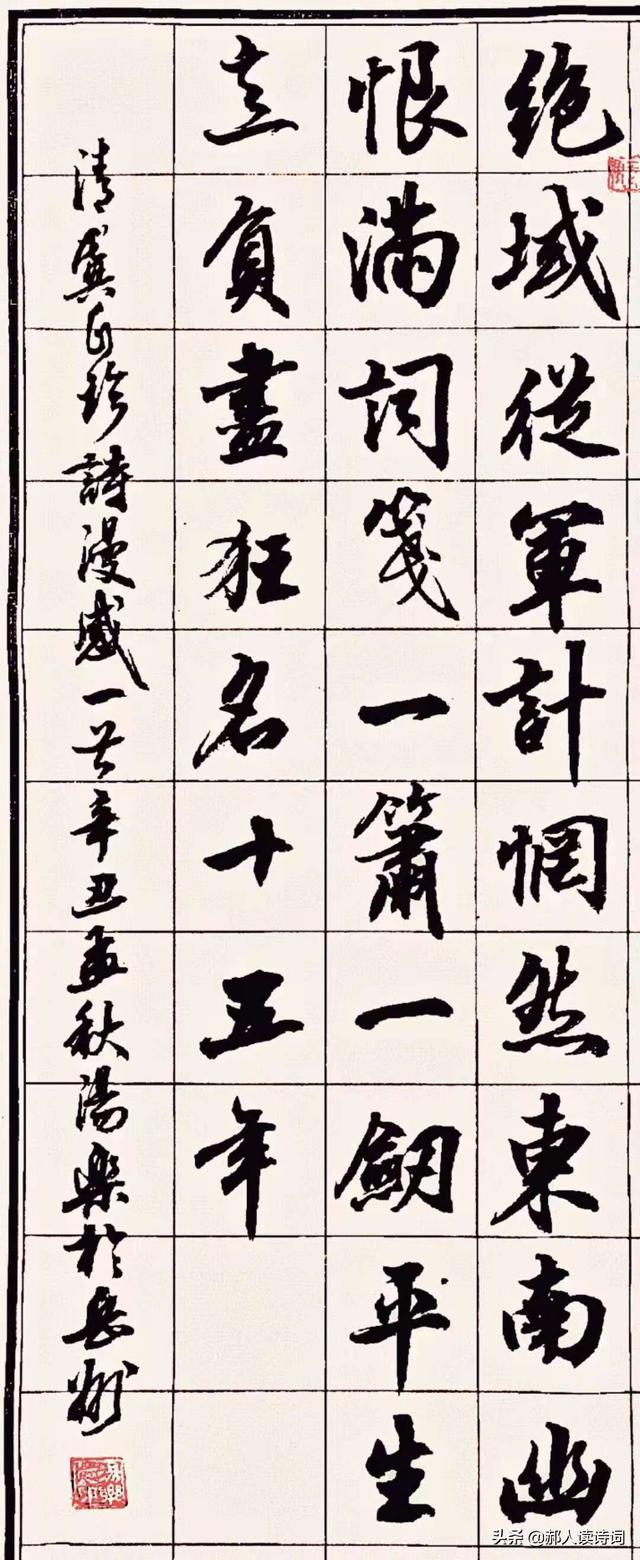 絶域從軍計惘然東南幽
恨滿詞箋一簫一劍平生
意負盡狂名十五年
清龔自珍詩漫感一首辛丑孟秋湯樂於岳州
头条 @郝人读诗词